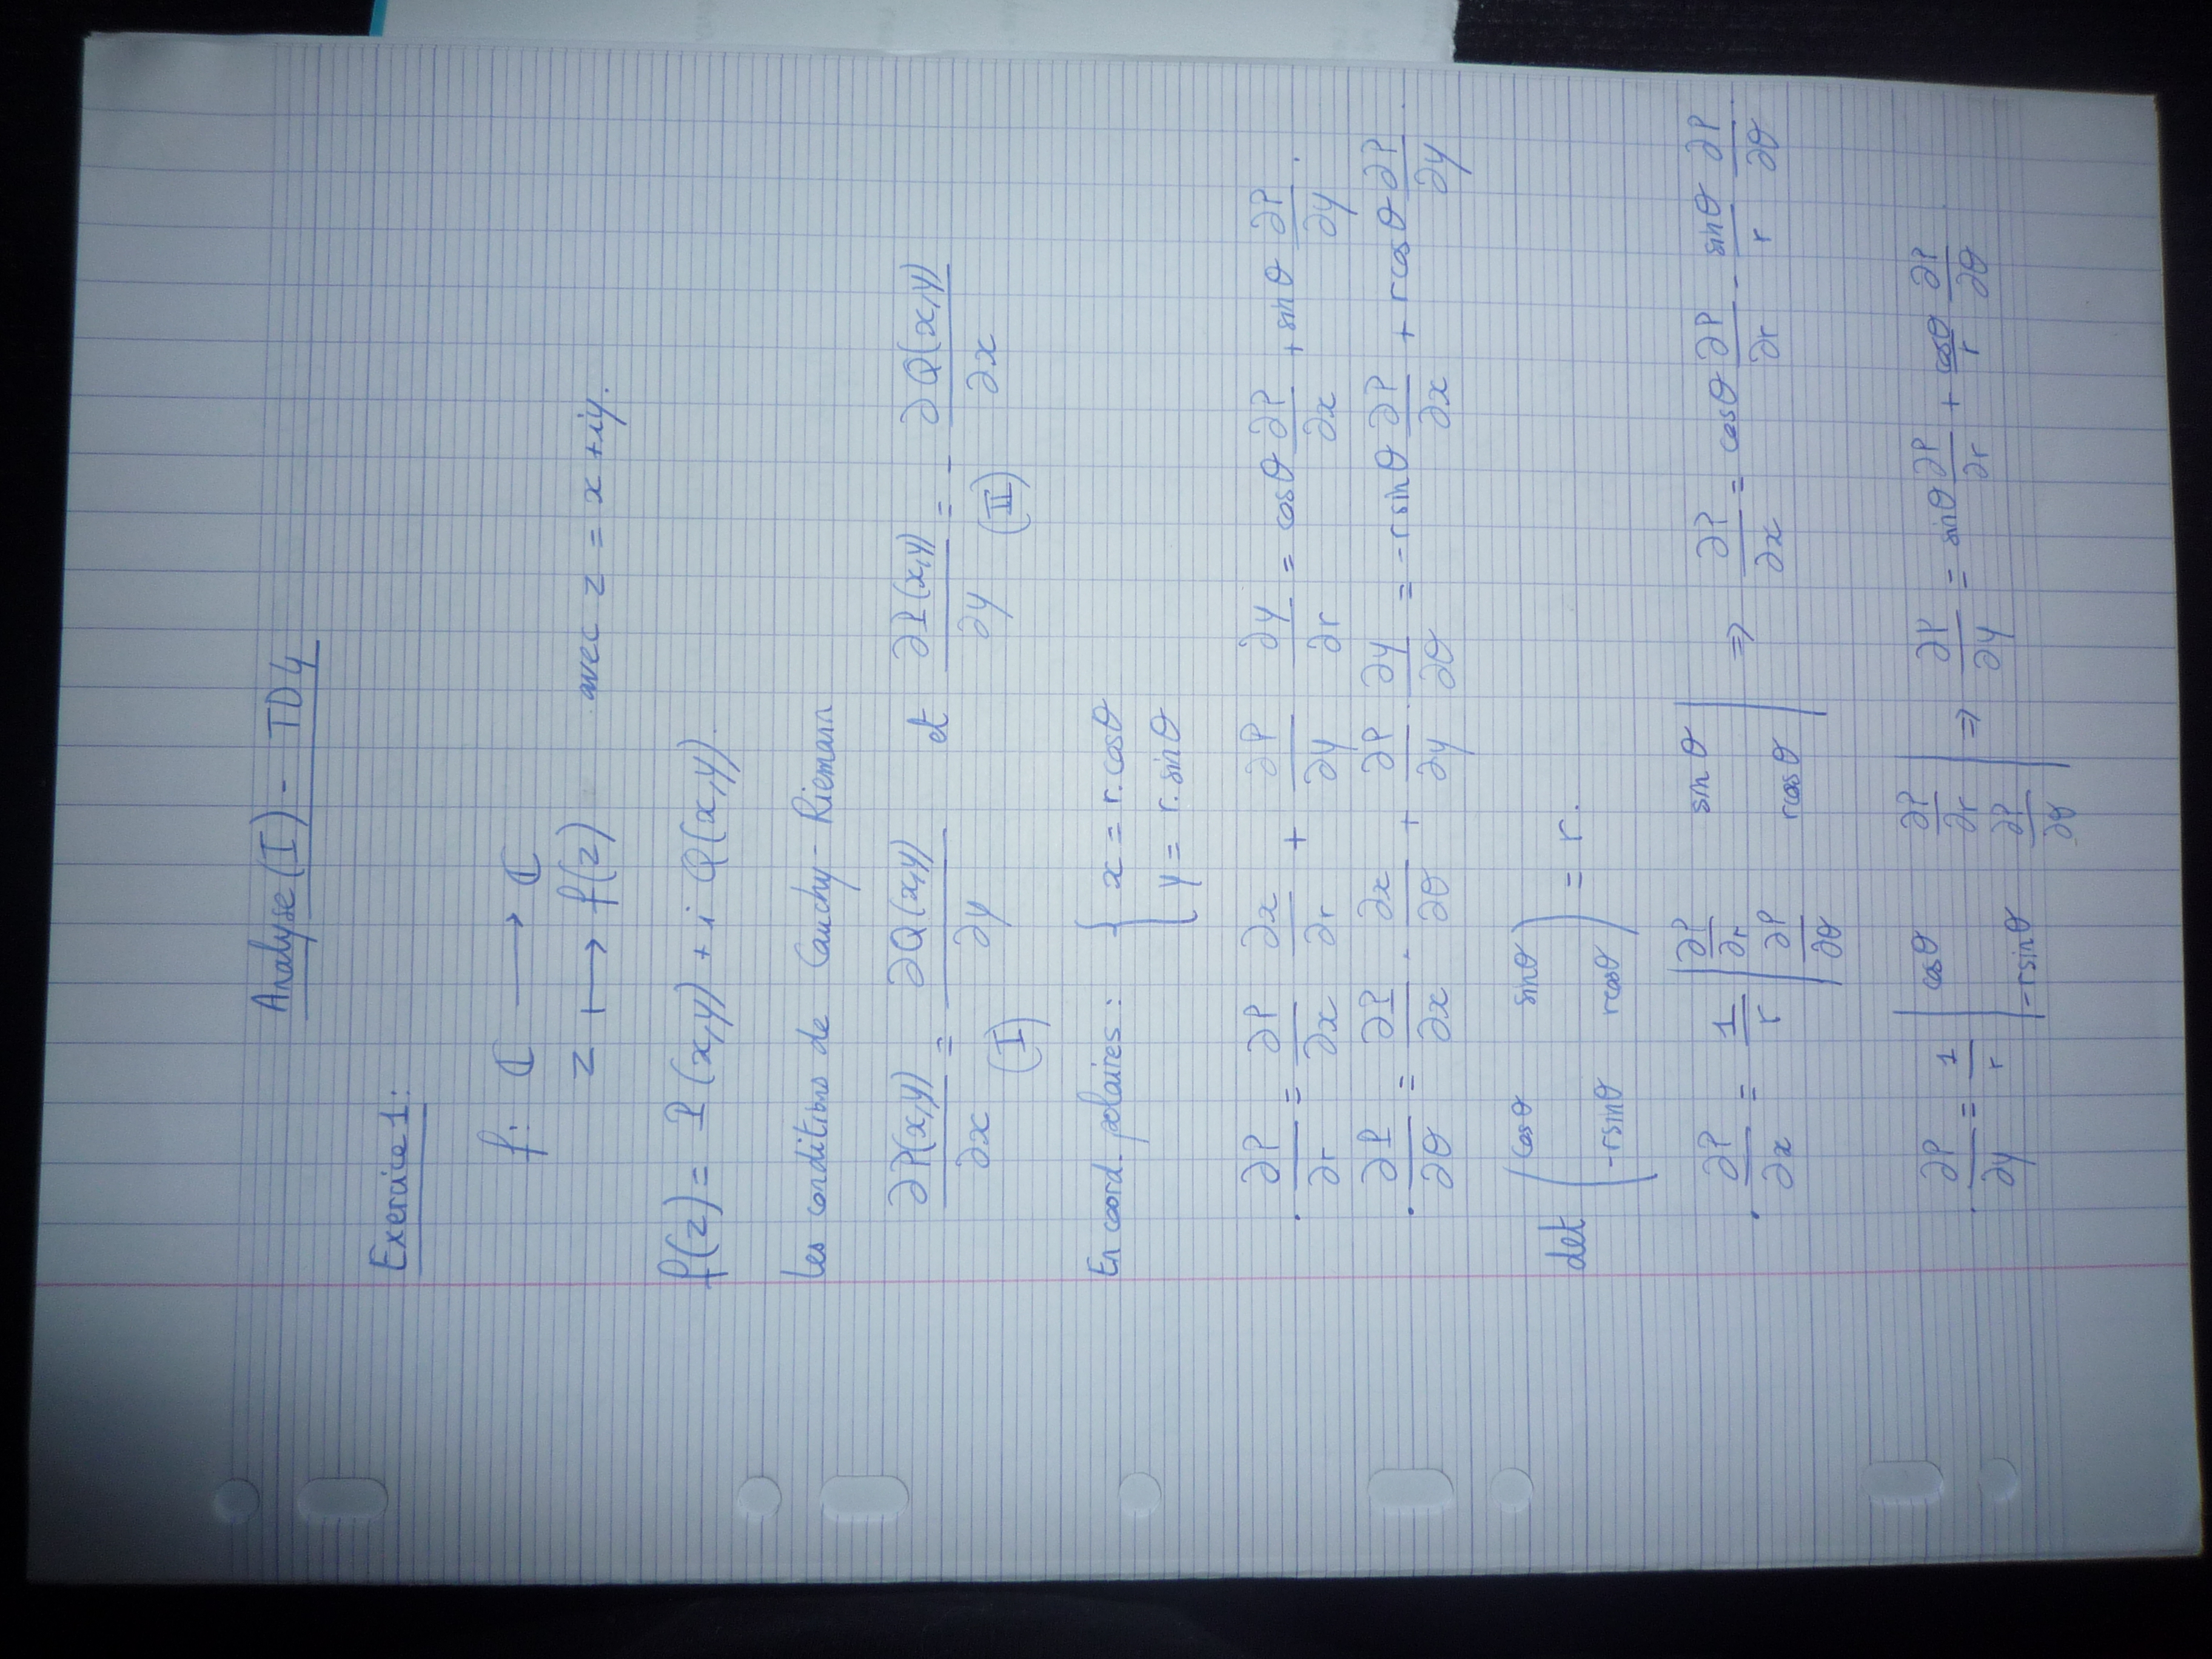 Analyse (I) - TD4
Exercice 1:
f: ℂ ⟶ ℂ
z ⟼ f(z) avec z = x + iy.
f(z) = P(x,y) + i Q(x,y).
Les conditions de Cauchy-Riemann
∂P(x,y)/∂x = ∂Q(x,y)/∂y (I) et ∂P(x,y)/∂y = - ∂Q(x,y)/∂x (II)
En coord. polaires: { x = r.cosθ
y = r.sinθ
. ∂P/∂r = ∂P/∂x ∂x/∂r + ∂P/∂y ∂y/∂r = cosθ ∂P/∂x + sinθ ∂P/∂y.
. ∂P/∂θ = ∂P/∂x . ∂x/∂θ + ∂P/∂y . ∂y/∂θ = -r sinθ ∂P/∂x + r cosθ ∂P/∂y.
det ( cosθ sinθ
-r sinθ r cosθ ) = r.
. ∂P/∂x = 1/r | ∂P/∂r sinθ
∂P/∂θ r cosθ | ⇒ ∂P/∂x = cosθ ∂P/∂r - sinθ/r ∂P/∂θ
. ∂P/∂y = 1/r | cosθ ∂P/∂r
-r sinθ ∂P/∂θ | ⇒ ∂P/∂y = sinθ ∂P/∂r + cosθ/r ∂P/∂θ.